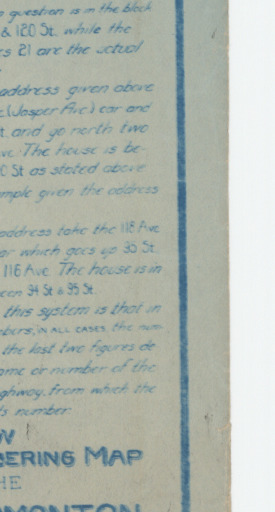 question is in the block
& 120 St. while the
s 21 are the actual
address given above
(Jasper Ave) car and
t. and go north two
ve. The house is be-
St as stated above
mple given the address
address take the 118 Ave
or which goes up 95 St.
116 Ave The house is in
een 94 St & 95 St.
this system is that in
bers, IN ALL CASES, the num-
the last two figures de
ame or number of the
ghway, from which the
ts number
W
BERING MAP
HE
MONTON